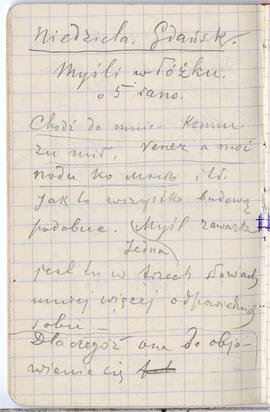 Niedziela. Gdańsk.
Myśli w łóżku.
o 5 rano.
Chodź do mnie - Komm
zu mir. Venez a moi
поди ко мнѣ, itd.
Jak to wszystko budową
podobne. (Myśl zawarta
Jedna
jest tu w trzech słowach
mniej więcej odpowiednich
sobie. -
Dlaczegóż ona do obja-
wienia się